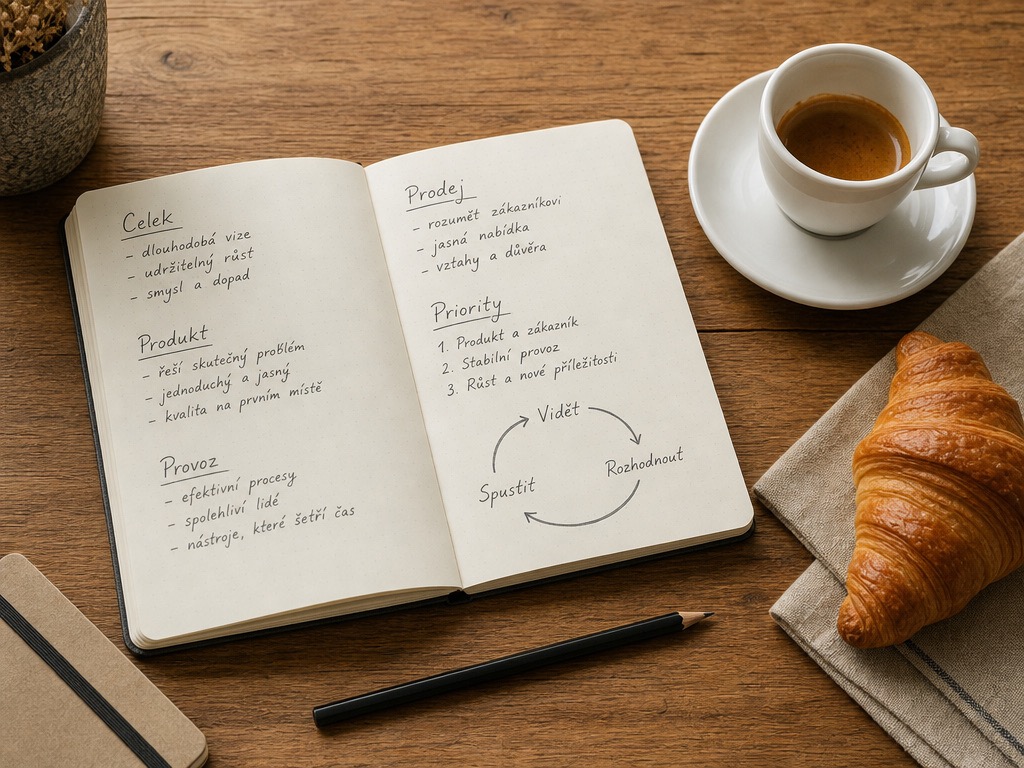 Celek
- dlouhodobá vize
- udržitelný růst
- smysl a dopad
Produkt
- řeší skutečný problém
- jednoduchý a jasný
- kvalita na prvním místě
Provoz
- efektivní procesy
- spolehliví lidé
- nástroje, které šetří čas
Prodej
- rozumět zákazníkovi
- jasná nabídka
- vztahy a důvěra
Priority
1. Produkt a zákazník
2. Stabilní provoz
3. Růst a nové příležitosti
Vidět
Rozhodnout
Spustit